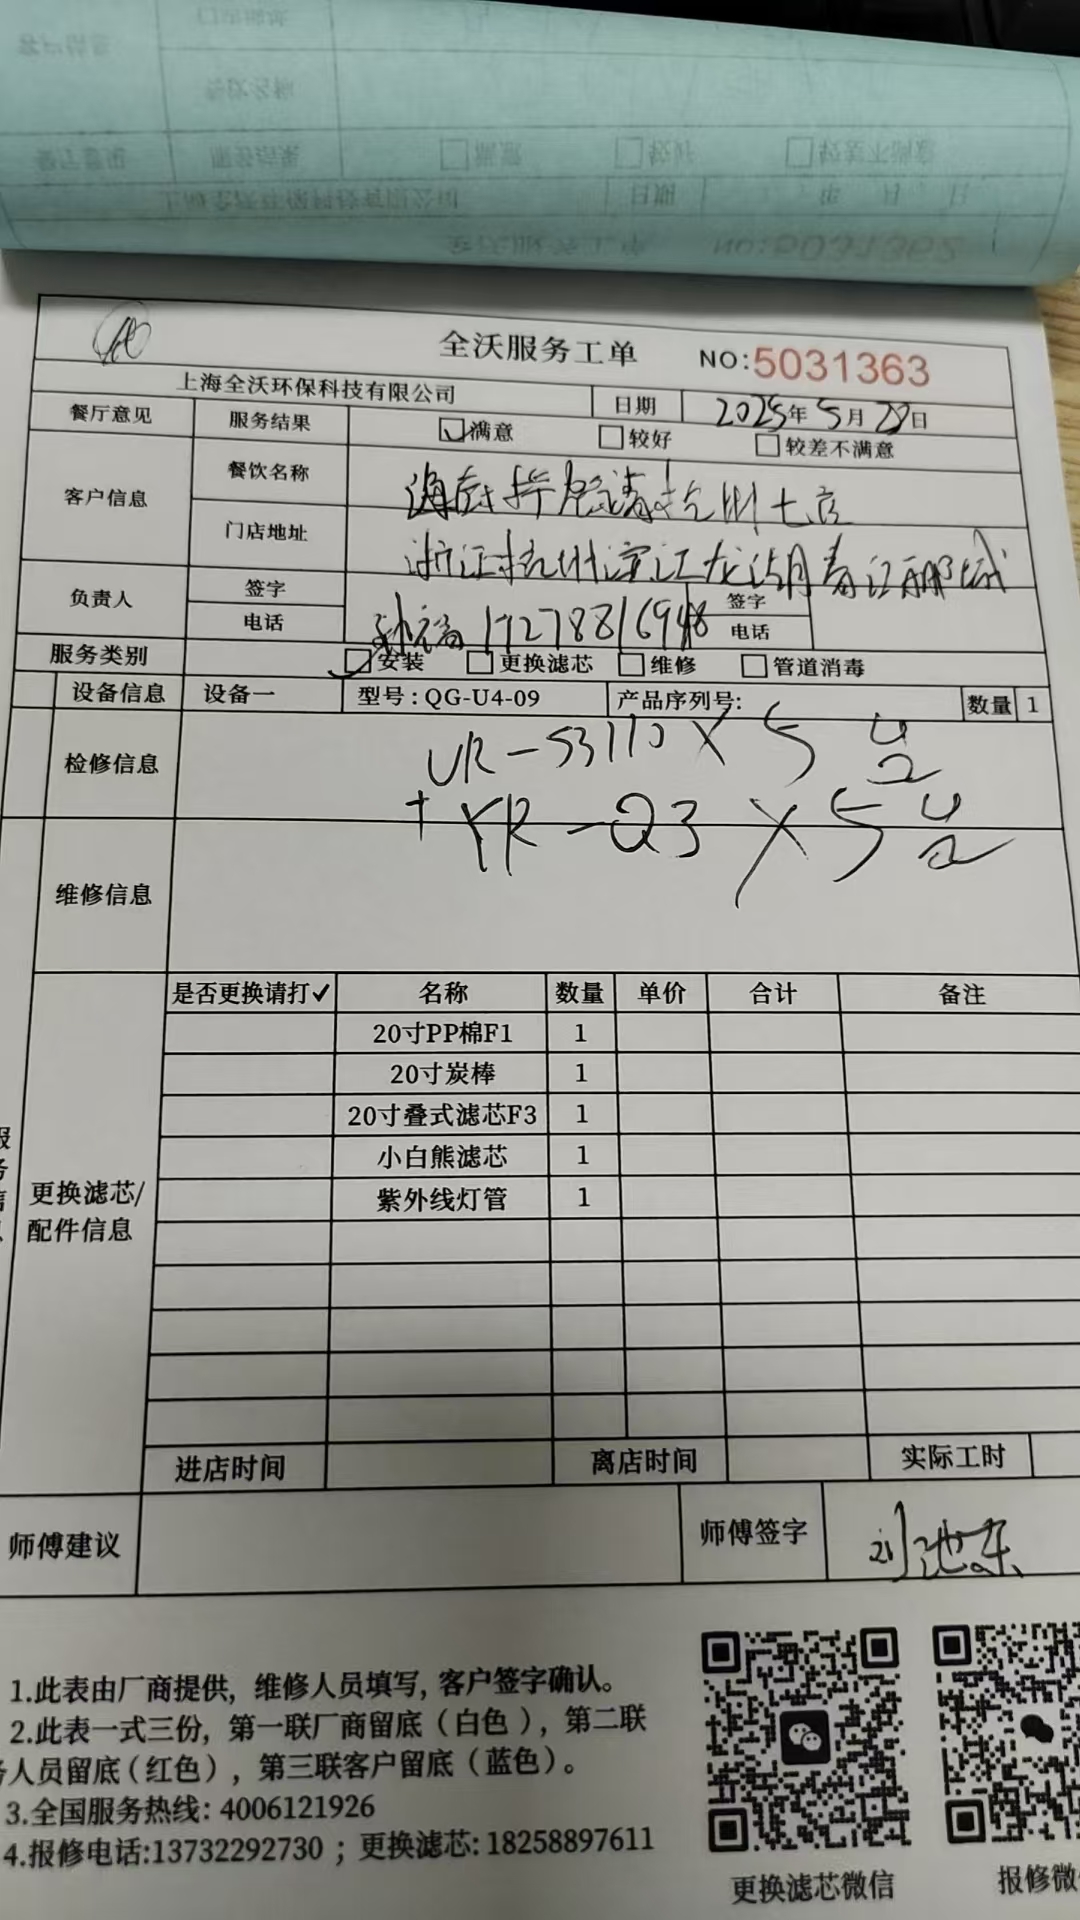 全沃服务工单 NO:5031363
上海全沃环保科技有限公司 日期 2025年5月28日
餐厅意见 服务结果 满意 较好 较差不满意
客户信息 餐饮名称
门店地址 浙江杭州滨江龙湖春江丽城
负责人 签字 签字
电话 17278816948 电话
服务类别 安装 更换滤芯 维修 管道消毒
设备信息 设备一 型号:QG-U4-09 产品序列号: 数量 1
检修信息 UR-53110 X 5
+ YR-Q3 X 5
维修信息
是否更换请打✓ 名称 数量 单价 合计 备注
20寸PP棉F1 1
20寸炭棒 1
20寸叠式滤芯F3 1
小白熊滤芯 1
紫外线灯管 1
更换滤芯/
配件信息
进店时间 离店时间 实际工时
师傅建议 师傅签字 刘池东
1.此表由厂商提供,维修人员填写,客户签字确认。
2.此表一式三份,第一联厂商留底(白色),第二联
人员留底(红色),第三联客户留底(蓝色)。
3.全国服务热线: 4006121926
4.报修电话:13732292730 ; 更换滤芯: 18258897611
更换滤芯微信 报修微